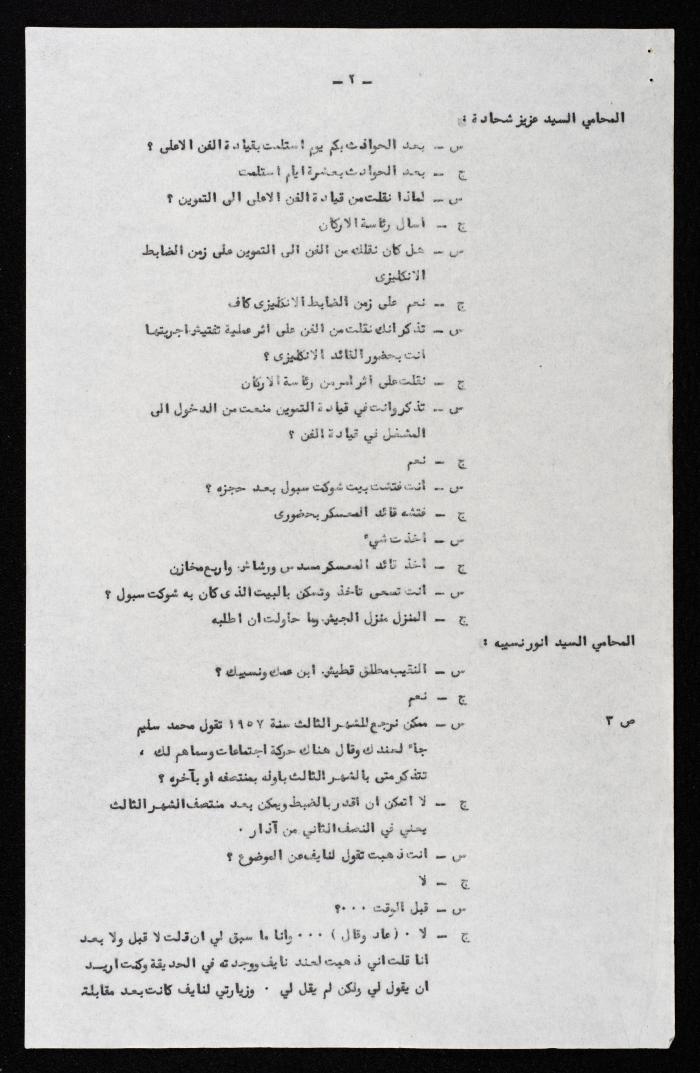 - ٢ -
المحامي السيد عزيز شحادة :
س - بعد الحوادث بكم يوم استلمت بقيادة الفن الاعلى ؟
ج - بعد الحوادث بعشرة ايام استلمت
س - لماذا نقلت من قيادة الفن الاعلى الى التموين ؟
ج - اسال رئاسة الاركان
س - هل كان نقلك من الفن الى التموين على زمن الضابط
الانكليزى
ج - نعم على زمن الضابط الانكليزى كاف
س - تذكر انك نقلت من الفن على اثر عملية تفتيش اجريتها
انت بحضور القائد الانكليزى ؟
ج - نقلت على اثر امر من رئاسة الاركان
س - تذكر وانت في قيادة التموين منعت من الدخول الى
المشغل في قيادة الفن ؟
ج - نعم
س - انت فتشت بيت شوكت سبول بعد حجزه ؟
ج - فتشه قائد المعسكر بحضورى
س - اخذت شيء
ج - اخذ قائد المعسكر مسدس ورشاش واربع مخازن
س - انت تسعى تاخذ وتسكن بالبيت الذى كان به شوكت سبول ؟
ج - المنزل منزل الجيش وما حاولت ان اطلبه
المحامي السيد انور نسيبه :
س - النقيب مطلق قطيش ابن عمك ونسيبك ؟
ج - نعم
ص ٣
س - ممكن نرجع للشهر الثالث سنة ١٩٥٧ تقول محمد سليم
جاء لعندك وقال هناك حركة اجتماعات وسماهم لك ،
تتذكر متى بالشهر الثالث باوله بمنتصفه او بآخره ؟
ج - لا اتمكن ان اقدر بالضبط ويمكن بعد منتصف الشهر الثالث
يعني في النصف الثاني من آذار .
س - انت ذهبت تقول لنايف عن الموضوع ؟
ج - لا
س - قبل الوقت ...؟
ج - لا . (عاد وقال ) ... وانا ما سبق لي ان قلت لا قبل ولا بعد
انا قلت اني ذهبت لعند نايف ووجدته في الحديقة وكنت اريد
ان يقول لي ولكن لم يقل لي . وزيارتي لنايف كانت بعد مقابلة